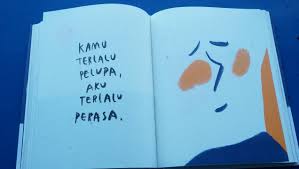 KAMU
TERLALU
PELUPA,
AKU
TERLALU
PERASA.